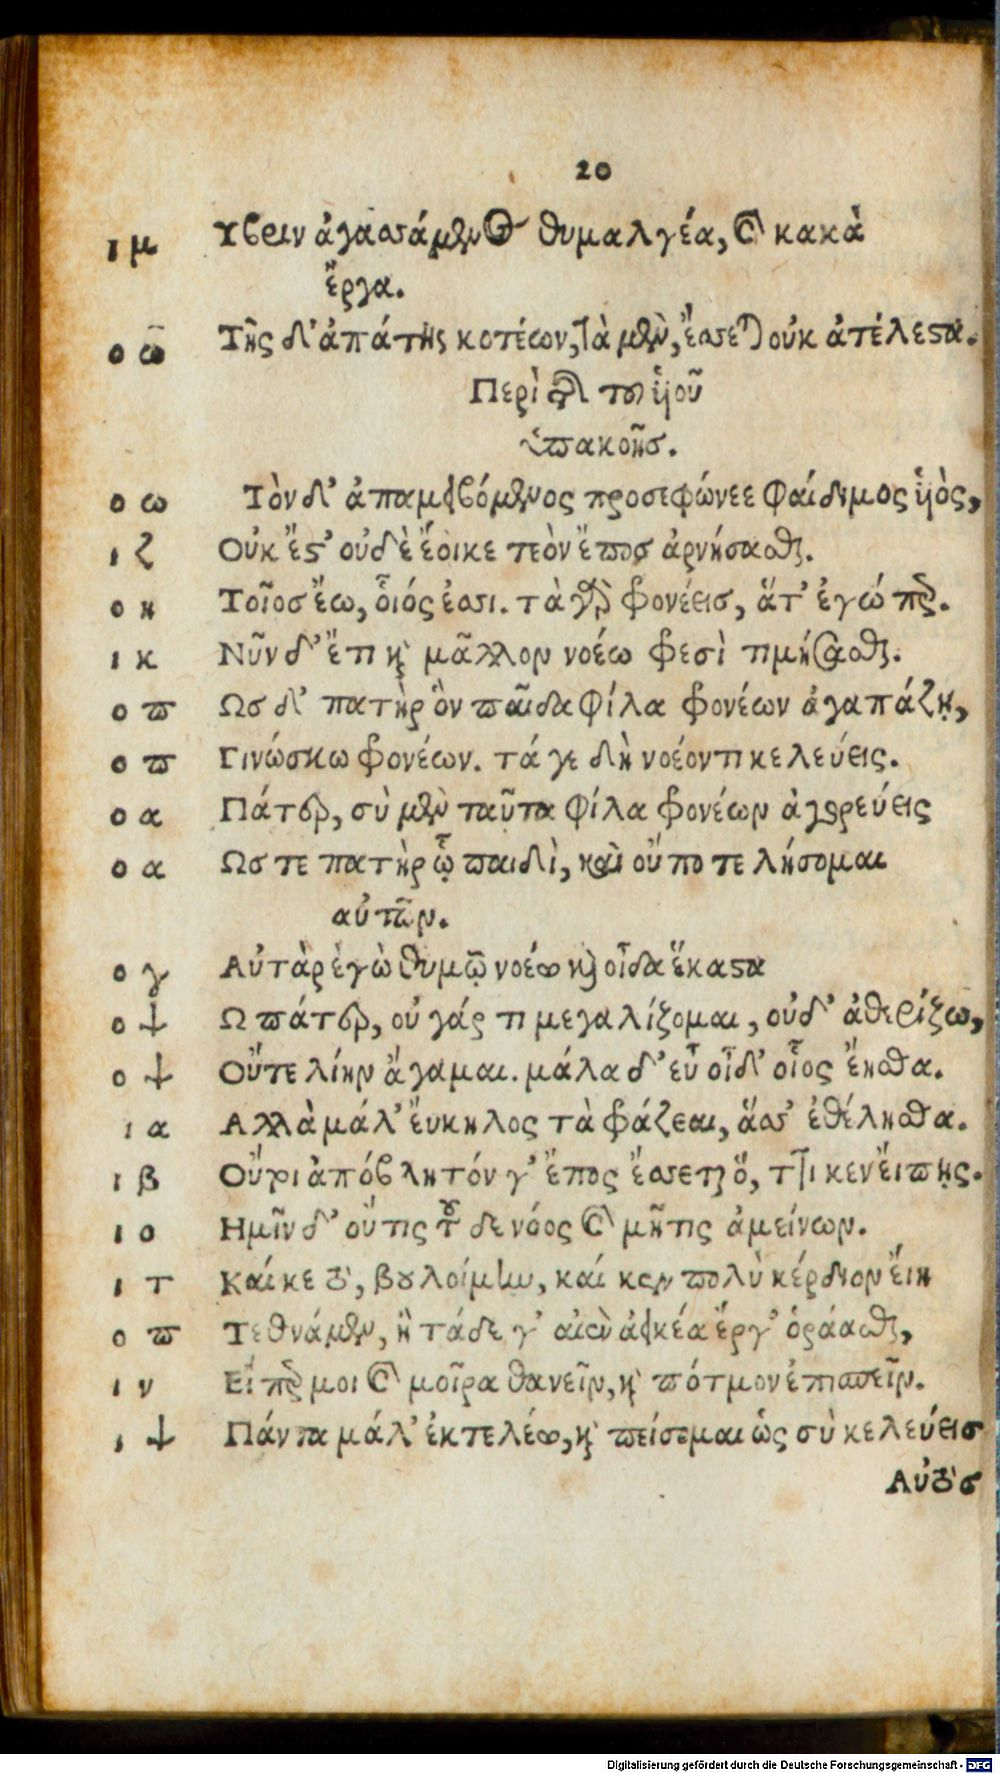 20
ι μ Ὕβριν ἀγασσάμενος θυμαλγέα, καὶ κακὰ
ἔργα.
ο ω Τῆς δ' ἀπάτης κοτέων, τὰ μὲν ἔσσεται οὐκ ἀτέλεστα.
Περὶ τῆς τοῦ ἱοῦ
ὑπακοῆς.
ο ω Τὸν δ' ἀπαμειβόμενος προσεφώνεε φαίδιμος ἱὸς,
ι ζ Οὐκ ἔστ' οὐδὲ ἔοικε τεὸν ἔπος ἀρνήσασθαι.
ο η Τοῖος ἔω, οἷός ἐσσι. τὰ γὰρ φρονέεις, ἅτ' ἐγώ περ.
ι κ Νῦν δ' ἔτι καὶ μᾶλλον νοέω φρεσὶ τιμήσασθαι.
ο π Ὡς δὲ πατὴρ ὃν παῖδα φίλα φρονέων ἀγαπάζῃ,
ο π Γινώσκω φρονέων. τά γε δὴ νοέοντι κελεύεις.
ο α Πάτερ, σὺ μὲν ταῦτα φίλα φρονέων ἀγορεύεις
ο α Ὥς τε πατὴρ ᾧ παιδὶ, καὶ οὔποτε λήσομαι
αὐτῶν.
ο γ Αὐτὰρ ἐγὼ θυμῷ νοέω καὶ οἶδα ἕκαστα
ο ψ Ὦ πάτερ, οὐ γάρ τι μεγαλίζομαι, οὐδ' ἀθερίζω,
ο ψ Οὔτε λίην ἄγαμαι. μάλα δ' εὖ οἶδ' οἷος ἔησθα.
ι α Ἀλλὰ μάλ' ἔυκηλος τὰ φράζεαι, ἅσσ' ἐθέλησθα.
ι β Οὔτοι ἀπόβλητόν γ' ἔπος ἔσσεται ὅ, ττι κεν εἴπῃς.
ι ο Ἡμῖν δ' οὔτις τοῦδε νόος καὶ μῆτις ἀμείνων.
ι τ Καί κε τὸ, βουλοίμην, καί κεν πολὺ κέρδιον εἴη
ο π Τεθνάμεν, ἢ τάδε γ' αἰὲν ἀεικέα ἔργ' ὁράασθαι,
ι ν Εἴπερ μοι καὶ μοῖρα θανεῖν, καὶ πότμον ἐπισπεῖν.
ι ψ Πάντα μάλ' ἐκτελέω, καὶ πείσομαι ὡς σὺ κελεύεις
Αὐτὸς
Digitalisierung gefördert durch die Deutsche Forschungsgemeinschaft - DFG